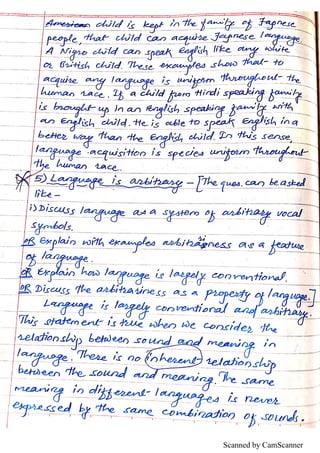 American child is kept in the family of Japnese
people, that child can acquire Japnese language.
A Nigro child can speak English like any white
or British child. These examples show that to
acquire any language is uniform throughout the
human race. If a child from Hindi speaking family
is brought up in an English speaking family with
an English child. He is able to speak English in a
better way than the English child. In this sense,
language acquisition is species uniform throughout
the human race.
5) Language is arbitrary – [The ques. can be asked
like –
i) Discuss language as a system of arbitrary vocal
symbols.
OR Explain with examples arbitrariness as a feature
of language.
OR Explain how language is largely conventional.
OR Discuss the arbitrariness as a property of language.]
Language is largely conventional and arbitrary.
This statement is true when we consider the
relationship between sound and meaning in
language. There is no inherent relationship
between the sound and meaning. The same
meaning in different languages is never
expressed by the same combination of sounds.
Scanned by CamScanner